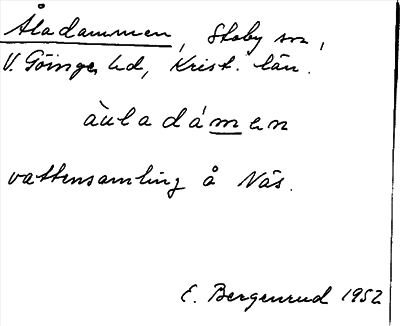 Åladammen, Stoby sn,
V. Göinge hd, Krist. län.
àu l a d á m e n
vattensamling å Näs.
E. Bergenrud 1952